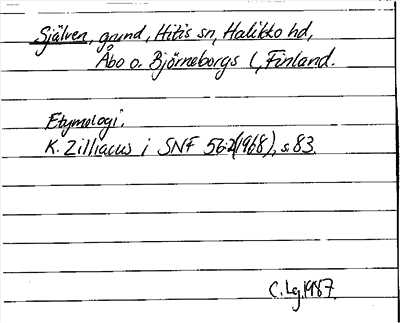 Själven, grund, Hitis sn, Halikko hd,
Åbo o. Björneborgs l, Finland.
Etymologi:
K. Zilliacus i SNF 56:2(1968), s 83.
C. Lg. 1987.